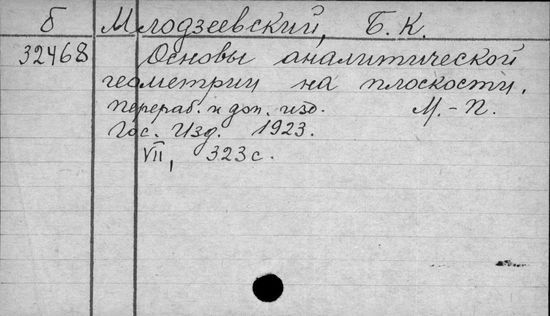 б Млодзеевский, Б. К.
32468 Основы аналитической
геометрии на плоскости.
Перераб. и доп. изд. М.-П.
Гос. Изд. 1923.
VII, 323 с.